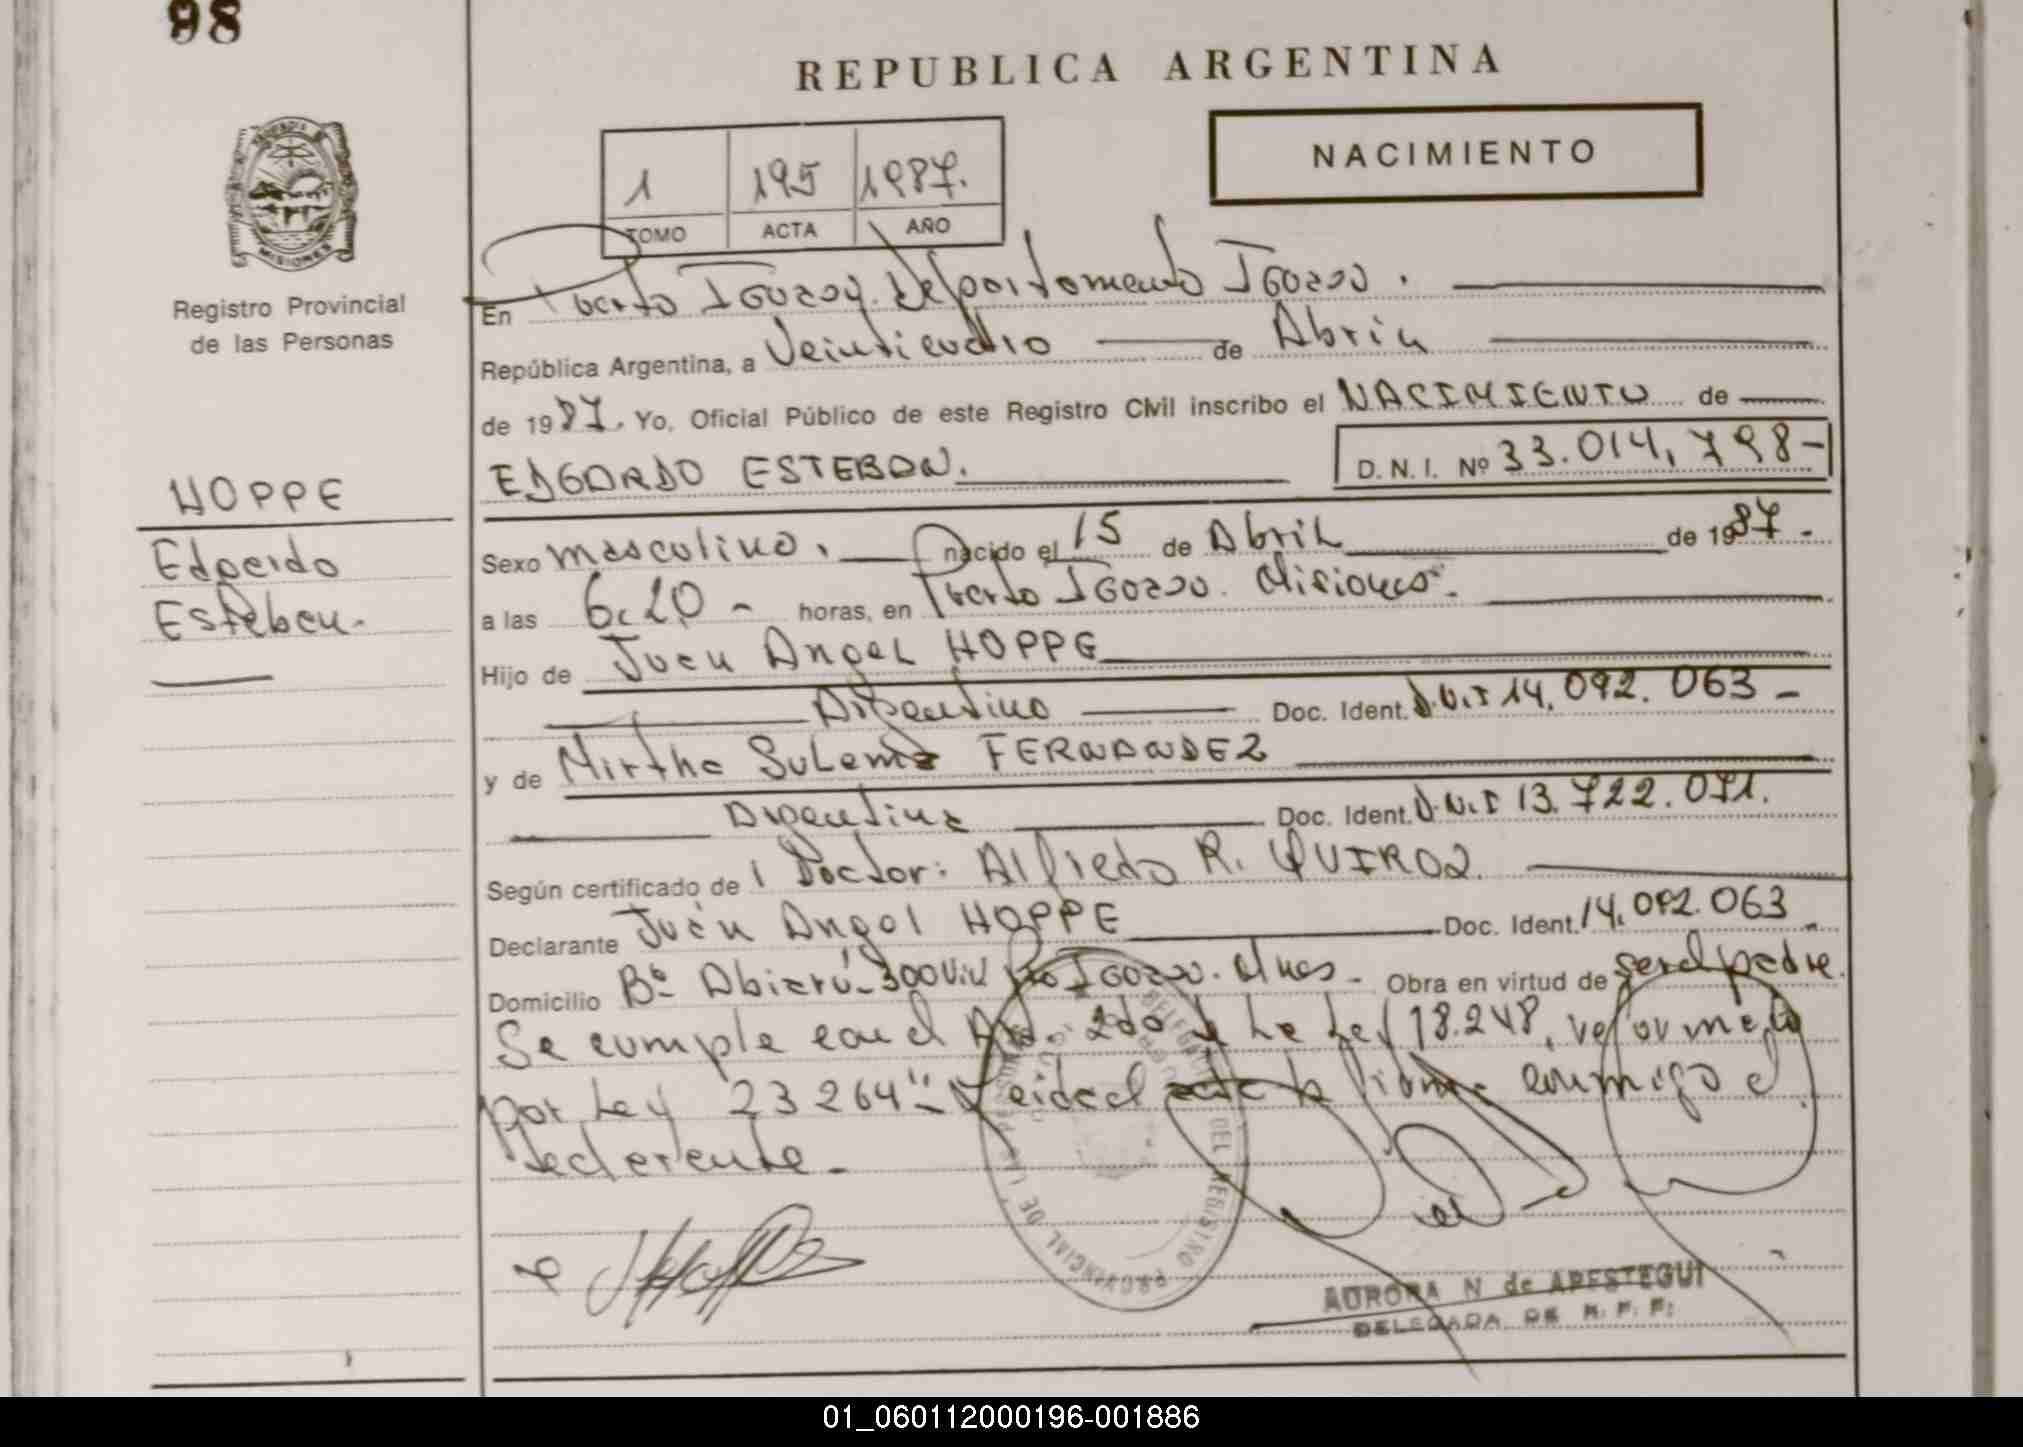 98
REPUBLICA ARGENTINA
NACIMIENTO
1 195 1987.
TOMO ACTA AÑO
MISIONES
Registro Provincial
de las Personas
HOPPE
Edgardo
Esteban.
En Puerto IGUAZU. departamento IGUAZU.
República Argentina, a Veinticuatro de Abril
de 1987. Yo, Oficial Público de este Registro Civil inscribo el NACIMIENTO de
EDGARDO ESTEBAN. D. N. I. Nº 33.014,798-
Sexo masculino. nacido el 15 de Abril de 1987-
a las 6.20- horas, en Puerto IGUAZU. Misiones.
Hijo de Juan Angel HOPPE
Argentino Doc. Ident. D.N.I 14.092.063-
y de Mirtha Sulema FERNANDEZ
Argentina Doc. Ident. D.N.I 13.722.071.
Según certificado de l Doctor: Alfredo R. QUIROZ
Declarante Juan Angel HOPPE Doc. Ident. 14.092.063
Domicilio Bº Abiarú-300Viv Pto IGUAZU. Mnes- Obra en virtud de ser el padre.
Se cumple con el Art. 2do de La Ley 18.248,
por Ley 23264"- Leida el acta la firma conmigo el
declarante-
DELEGACION DEL REGISTRO PROVINCIAL DE LAS PERSONAS
AURORA N de APESTEGUI
DELEGADA DE R. P. P.
01_060112000196-001886